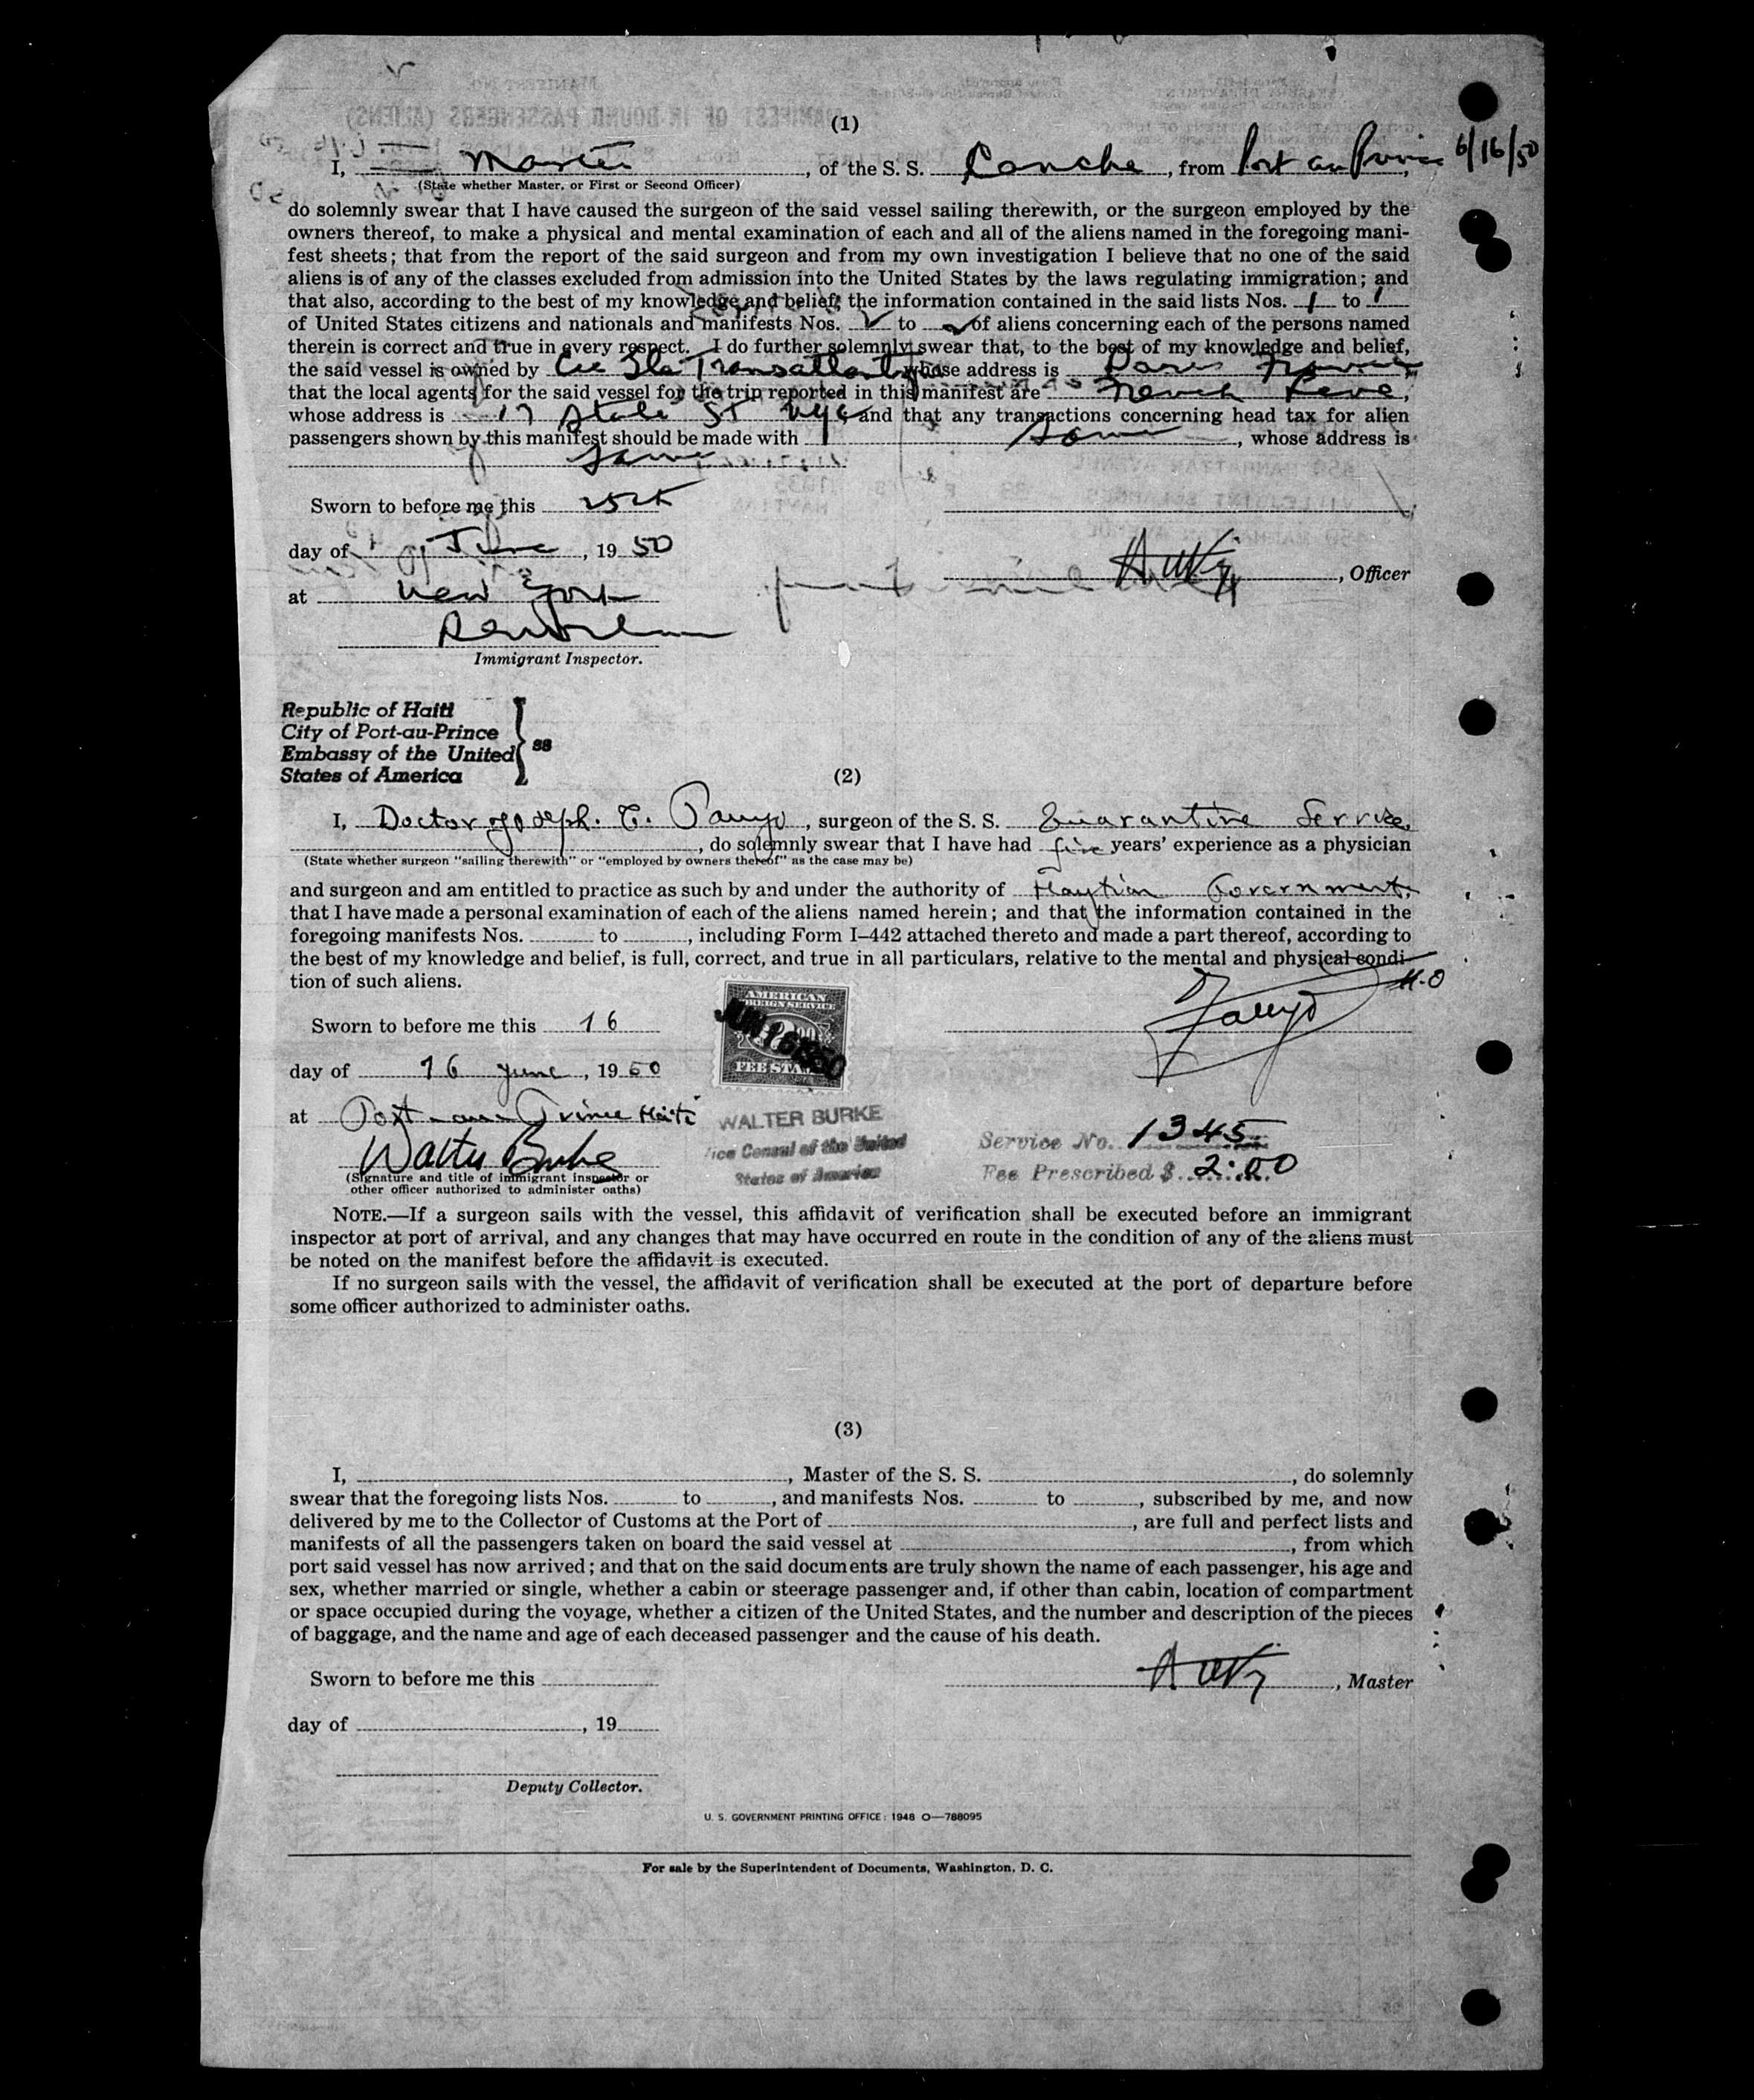 (1)
I, Master, of the S. S. Conche, from Port au Prince, 6/16/50
(State whether Master, or First or Second Officer)
do solemnly swear that I have caused the surgeon of the said vessel sailing therewith, or the surgeon employed by the
owners thereof, to make a physical and mental examination of each and all of the aliens named in the foregoing mani-
fest sheets; that from the report of the said surgeon and from my own investigation I believe that no one of the said
aliens is of any of the classes excluded from admission into the United States by the laws regulating immigration; and
that also, according to the best of my knowledge and belief, the information contained in the said lists Nos. 1 to 1
of United States citizens and nationals and manifests Nos. to of aliens concerning each of the persons named
therein is correct and true in every respect. I do further solemnly swear that, to the best of my knowledge and belief,
the said vessel is owned by Cie Gle Transatlantique whose address is Paris France
that the local agents for the said vessel for the trip reported in this manifest are French Line,
whose address is 17 State St NYC and that any transactions concerning head tax for alien
passengers shown by this manifest should be made with same, whose address is
same
Sworn to before me this 25th
day of June, 19 50
, Officer
at New York
Immigrant Inspector.
Republic of Haiti
City of Port-au-Prince
Embassy of the United
States of America
} SS
(2)
I, Doctor Joseph. C. , surgeon of the S. S. Quarantine Service,
, do solemnly swear that I have had five years' experience as a physician
(State whether surgeon "sailing therewith" or "employed by owners thereof" as the case may be)
and surgeon and am entitled to practice as such by and under the authority of Haytian Government,
that I have made a personal examination of each of the aliens named herein; and that the information contained in the
foregoing manifests Nos. to , including Form I–442 attached thereto and made a part thereof, according to
the best of my knowledge and belief, is full, correct, and true in all particulars, relative to the mental and physical condi-
tion of such aliens.
AMERICAN
FOREIGN SERVICE
2.00
FEE STAMP
JUN 16 1950
Sworn to before me this 16
day of 16 June, 19 50
at Port-au-Prince Haiti
Walter Burke
(Signature and title of immigrant inspector or
other officer authorized to administer oaths)
WALTER BURKE
Vice Consul of the United
States of America
Service No. 1345
Fee Prescribed $ 2.00
NOTE.—If a surgeon sails with the vessel, this affidavit of verification shall be executed before an immigrant
inspector at port of arrival, and any changes that may have occurred en route in the condition of any of the aliens must
be noted on the manifest before the affidavit is executed.
If no surgeon sails with the vessel, the affidavit of verification shall be executed at the port of departure before
some officer authorized to administer oaths.
(3)
I, , Master of the S. S. , do solemnly
swear that the foregoing lists Nos. to , and manifests Nos. to , subscribed by me, and now
delivered by me to the Collector of Customs at the Port of , are full and perfect lists and
manifests of all the passengers taken on board the said vessel at , from which
port said vessel has now arrived; and that on the said documents are truly shown the name of each passenger, his age and
sex, whether married or single, whether a cabin or steerage passenger and, if other than cabin, location of compartment
or space occupied during the voyage, whether a citizen of the United States, and the number and description of the pieces
of baggage, and the name and age of each deceased passenger and the cause of his death.
Sworn to before me this
, Master
day of , 19
Deputy Collector.
U. S. GOVERNMENT PRINTING OFFICE: 1948 O—788095
For sale by the Superintendent of Documents, Washington, D. C.